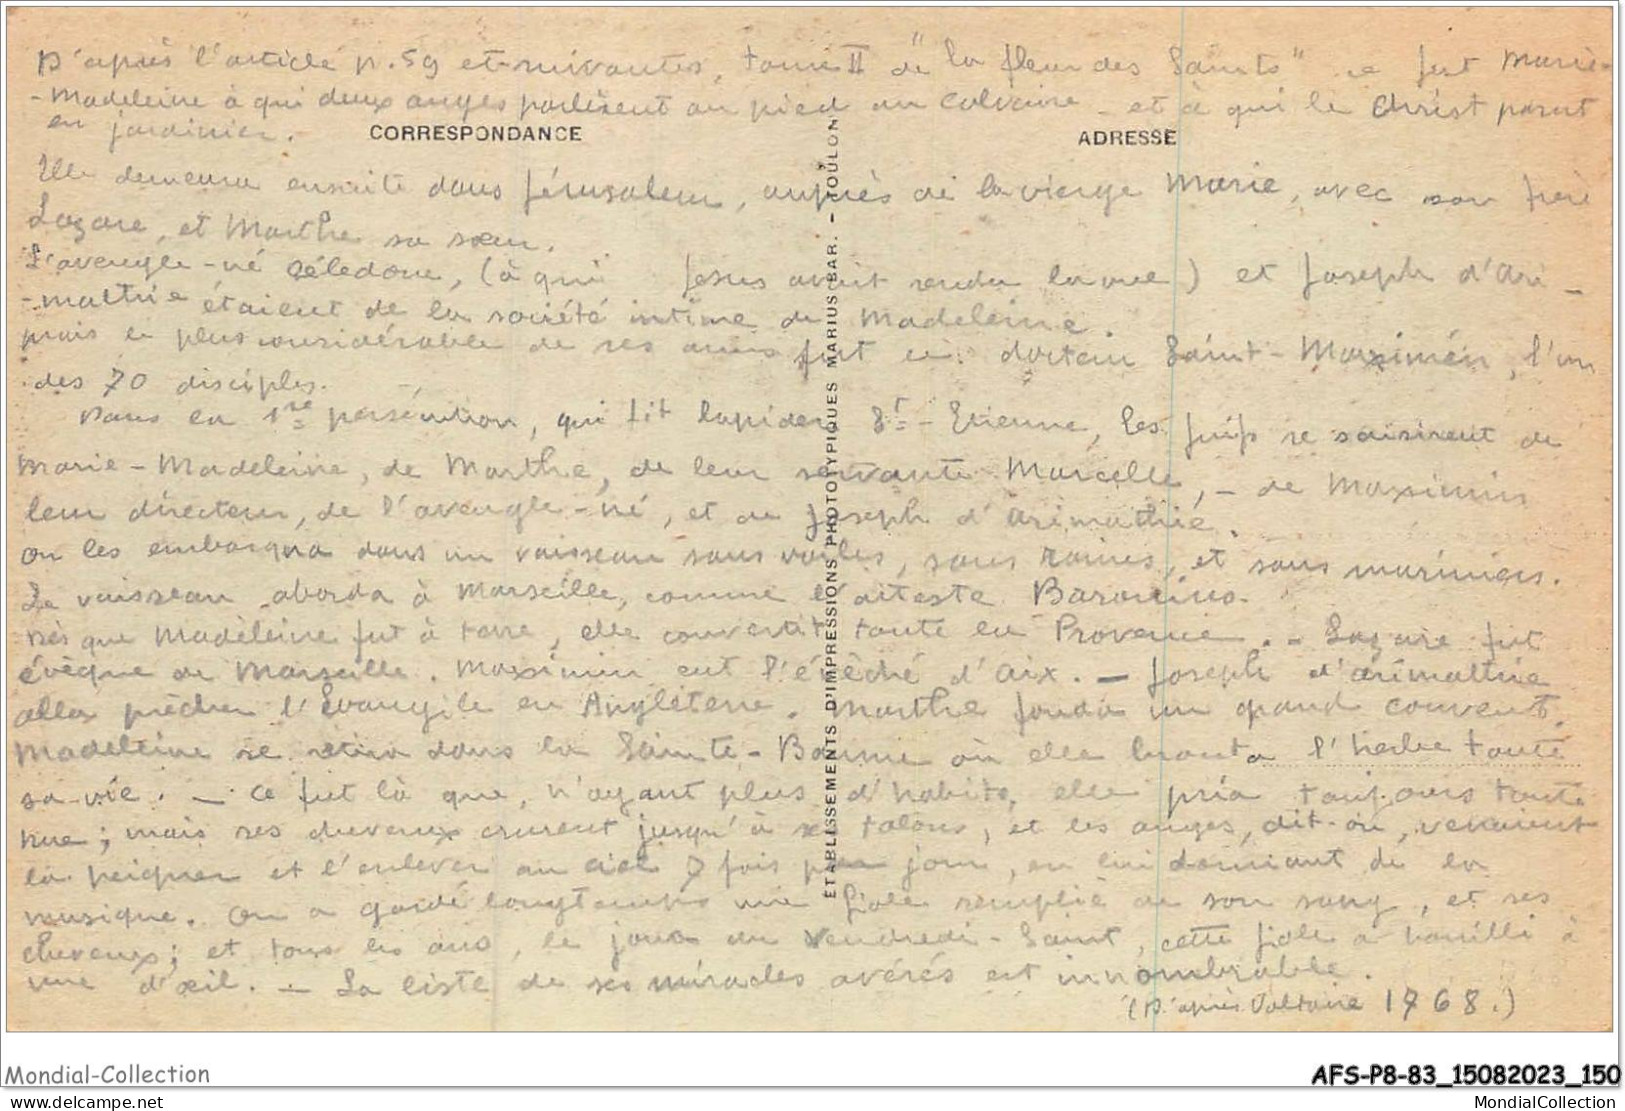 D'après l'article p. 59 et suivantes, tome II de "la fleur des Saints" ce fut Marie-
-Madeleine à qui deux anges parlèrent au pied du calvaire et à qui le Christ parut
en jardinier.
CORRESPONDANCE
ADRESSE
Elle demeura ensuite dans Jérusalem, auprès de la vierge Marie, avec son frère
Lazare, et Marthe sa sœur.
L'aveugle-né Céledone, (à qui Jesus avait rendu la vue) et Joseph d'Ari-
-mathie étaient de la société intime de Madeleine.
mais le plus considérable de ses amis fut le docteur Saint-Maximin, l'un
des 70 disciples.
Dans la 1re persécution, qui fit lapider St-Etienne, les juifs se saisirent de
Marie-Madeleine, de Marthe, de leur servante Marcelle, - de Maximin
leur directeur, de l'aveugle-né, et de Joseph d'Arimathie.
On les embarqua dans un vaisseau sans voiles, sans rames, et sans mariniers.
Le vaisseau aborda à Marseille, comme l'atteste Baronius.
Dès que Madeleine fut à terre, elle convertit toute la Provence. - Lazare fut
évêque de Marseille. Maximin eut l'évêché d'Aix. - Joseph d'arimathie
alla prêcher l'Evangile en Angleterre. Marthe fonda un grand couvent.
Madeleine se retira dans la Sainte-Baume où elle brouta l'herbe toute
sa vie. - Ce fut là que, n'ayant plus d'habits, elle pria toujours toute
nue; mais ses cheveux crurent jusqu'à ses talons, et les anges, dit-on, venaient
la peigner et l'enlever au ciel 7 fois par jour, en lui donnant de la
musique. On a gardé longtemps une fiole remplie de son sang, et ses
cheveux; et tous les ans, le jour du Vendredi-Saint, cette fiole a bouilli à
vue d'œil. - La liste de ses miracles avérés est innombrable.
(D'après Voltaire 1768.)
ÉTABLISSEMENTS D'IMPRESSIONS PHOTOTYPIQUES MARIUS BAR. - TOULON
Mondial-Collection
AFS-P8-83_15082023_150
www.delcampe.net
MondialCollection